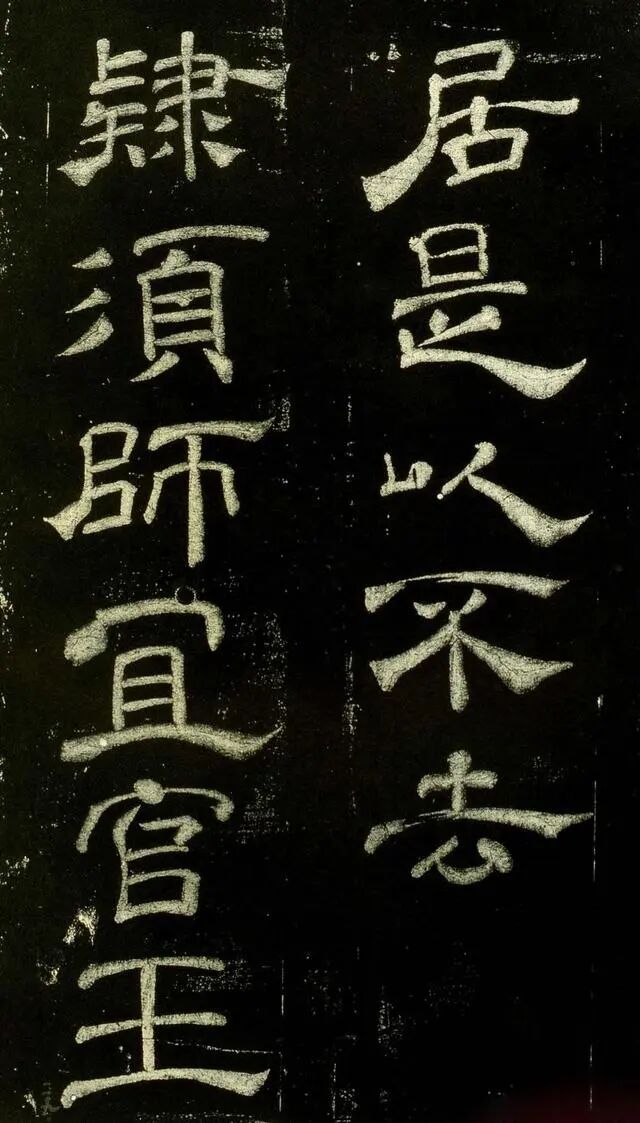 居是以不去
隸須師宜官王